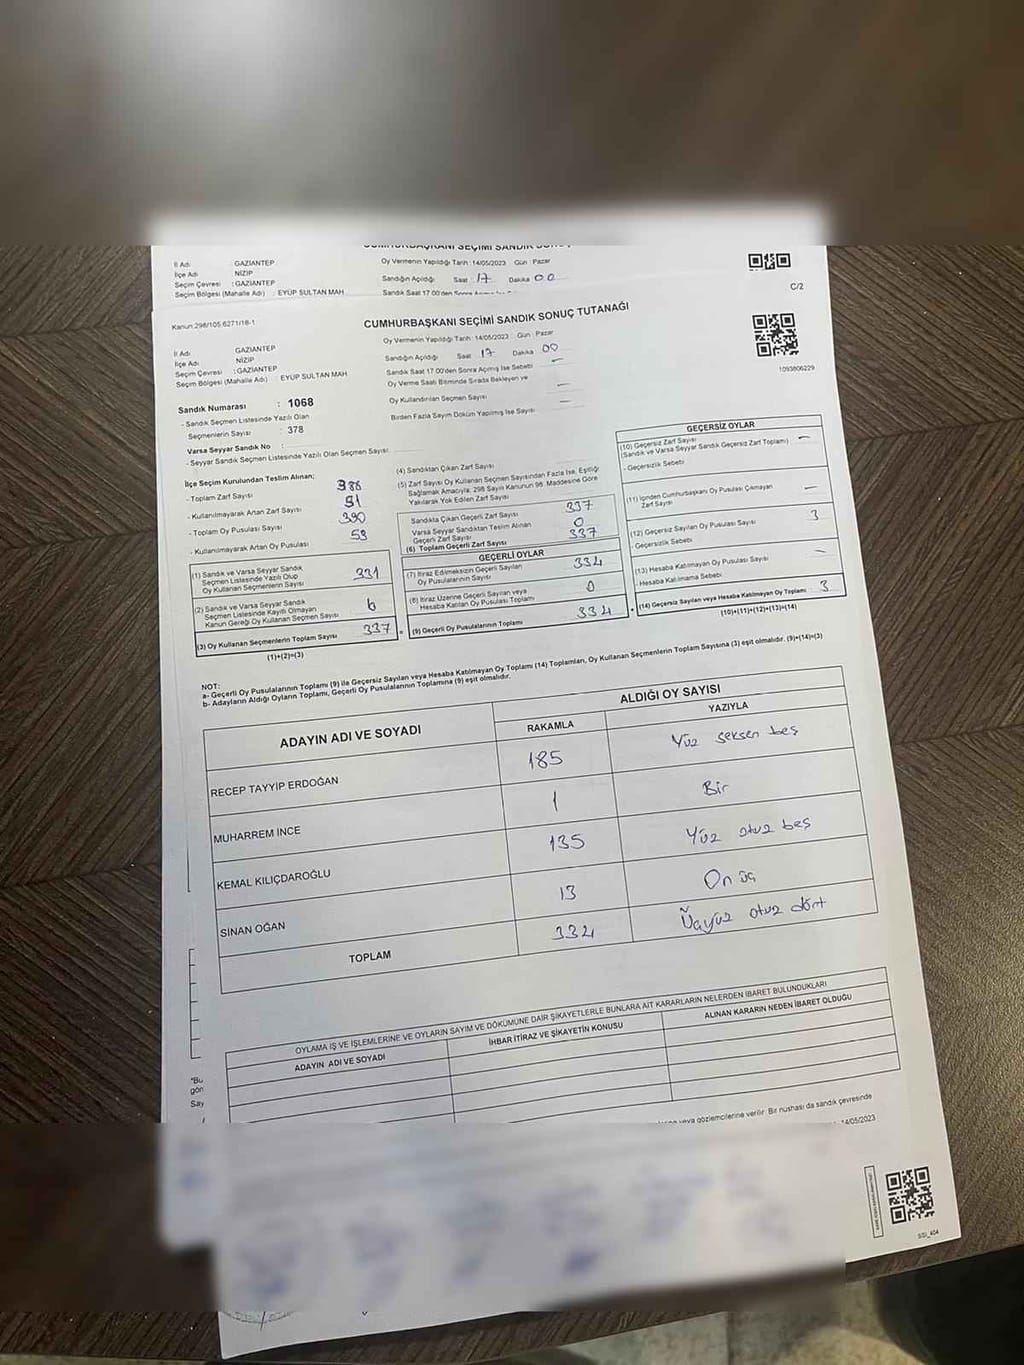 İl Adı : GAZİANTEP
İlçe Adı : NİZİP
Seçim Çevresi : GAZİANTEP
Seçim Bölgesi (Mahalle Adı) : EYÜP SULTAN MAH
Oy Vermenin Yapıldığı Tarih : 14/05/2023 Gün : Pazar
Sandığın Açıldığı Saat : 17 Dakika 00
C/2
Kanun 298/105.6271/16-1
CUMHURBAŞKANI SEÇİMİ SANDIK SONUÇ TUTANAĞI
İl Adı : GAZİANTEP
İlçe Adı : NİZİP
Seçim Çevresi : GAZİANTEP
Seçim Bölgesi (Mahalle Adı) : EYÜP SULTAN MAH
Oy Vermenin Yapıldığı Tarih : 14/05/2023 Gün : Pazar
Sandığın Açıldığı Saat 17 Dakika 00
Sandık Saat 17.00'den Sonra Açılmış İse Sebebi —
Oy Verme Saati Bitiminde Sırada Bekleyen ve
Oy Kullandırılan Seçmen Sayısı —
Birden Fazla Sayım Döküm Yapılmış İse Sayısı —
1093806229
Sandık Numarası : 1068
- Sandık Seçmen Listesinde Yazılı Olan
Seçmenlerin Sayısı : 378
Varsa Seyyar Sandık No :
- Seyyar Sandık Seçmen Listesinde Yazılı Olan Seçmen Sayısı:
İlçe Seçim Kurulundan Teslim Alınan:
- Toplam Zarf Sayısı 388
- Kullanılmayarak Artan Zarf Sayısı 51
- Toplam Oy Pusulası Sayısı 390
- Kullanılmayarak Artan Oy Pusulası 53
(1) Sandık ve Varsa Seyyar Sandık
Seçmen Listesinde Yazılı Olup
Oy Kullanan Seçmenlerin Sayısı 331
(2) Sandık ve Varsa Seyyar Sandık
Seçmen Listesinde Kayıtlı Olmayan
Kanun Gereği Oy Kullanan Seçmen Sayısı 6
(3) Oy Kullanan Seçmenlerin Toplam Sayısı 337
(1)+(2)=(3)
(4) Sandıktan Çıkan Zarf Sayısı
(5) Zarf Sayısı Oy Kullanan Seçmen Sayısından Fazla İse, Eşitliği
Sağlamak Amacıyla, 298 Sayılı Kanunun 98. Maddesine Göre
Yakılarak Yok Edilen Zarf Sayısı
Sandıkta Çıkan Geçerli Zarf Sayısı 337
Varsa Seyyar Sandıktan Teslim Alınan
Geçerli Zarf Sayısı 0
(6) Toplam Geçerli Zarf Sayısı 337
GEÇERLİ OYLAR
(7) İtiraz Edilmeksizin Geçerli Sayılan
Oy Pusulalarının Sayısı 334
(8) İtiraz Üzerine Geçerli Sayılan veya
Hesaba Katılan Oy Pusulası Toplamı 0
= (9) Geçerli Oy Pusulalarının Toplamı 334
GEÇERSİZ OYLAR
(10) Geçersiz Zarf Sayısı —
(Sandık ve Varsa Seyyar Sandık Geçersiz Zarf Toplamı)
- Geçersizlik Sebebi
(11) İçinden Cumhurbaşkanı Oy Pusulası Çıkmayan
Zarf Sayısı —
(12) Geçersiz Sayılan Oy Pusulası Sayısı 3
- Geçersizlik Sebebi
(13) Hesaba Katılmayan Oy Pusulası Sayısı —
- Hesaba Katılmama Sebebi
+ (14) Geçersiz Sayılan veya Hesaba Katılmayan Oy Toplamı 3
(10)+(11)+(12)+(13)=(14)
NOT:
a- Geçerli Oy Pusulalarının Toplamı (9) ile Geçersiz Sayılan veya Hesaba Katılmayan Oy Toplamı (14) Toplamları, Oy Kullanan Seçmenlerin Toplam Sayısına (3) eşit olmalıdır. (9)+(14)=(3)
b- Adayların Aldığı Oyların Toplamı, Geçerli Oy Pusulalarının Toplamına (9) eşit olmalıdır.
ADAYIN ADI VE SOYADI
ALDIĞI OY SAYISI
RAKAMLA YAZIYLA
RECEP TAYYİP ERDOĞAN 185 Yüz seksen beş
MUHARREM İNCE 1 Bir
KEMAL KILIÇDAROĞLU 135 Yüz otuz beş
SİNAN OĞAN 13 On üç
TOPLAM 334 Üçyüz otuz dört
OYLAMA İŞ VE İŞLEMLERİNE VE OYLARIN SAYIM VE DÖKÜMÜNE DAİR ŞİKAYETLERLE BUNLARA AİT KARARLARIN NELERDEN İBARET BULUNDUKLARI
ADAYIN ADI VE SOYADI İHBAR İTİRAZ VE ŞİKAYETİN KONUSU ALINAN KARARIN NEDEN İBARET OLDUĞU
"Bu
gör
Say
veya gözlemcilerine verilir. Bir nüshası da sandık çevresinde
14/05/2023